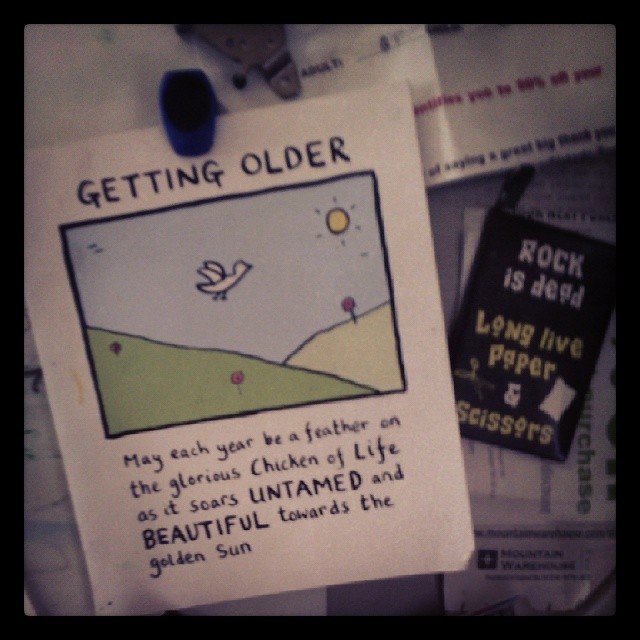 GETTING OLDER
May each year be a feather on
the glorious Chicken of Life
as it soars UNTAMED and
BEAUTIFUL towards the
golden Sun
ROCK
is dead
Long live
paper
&
scissors
ADULT
you to 50% off your
of saying a great big thank you
purchase
MOUNTAIN
WAREHOUSE